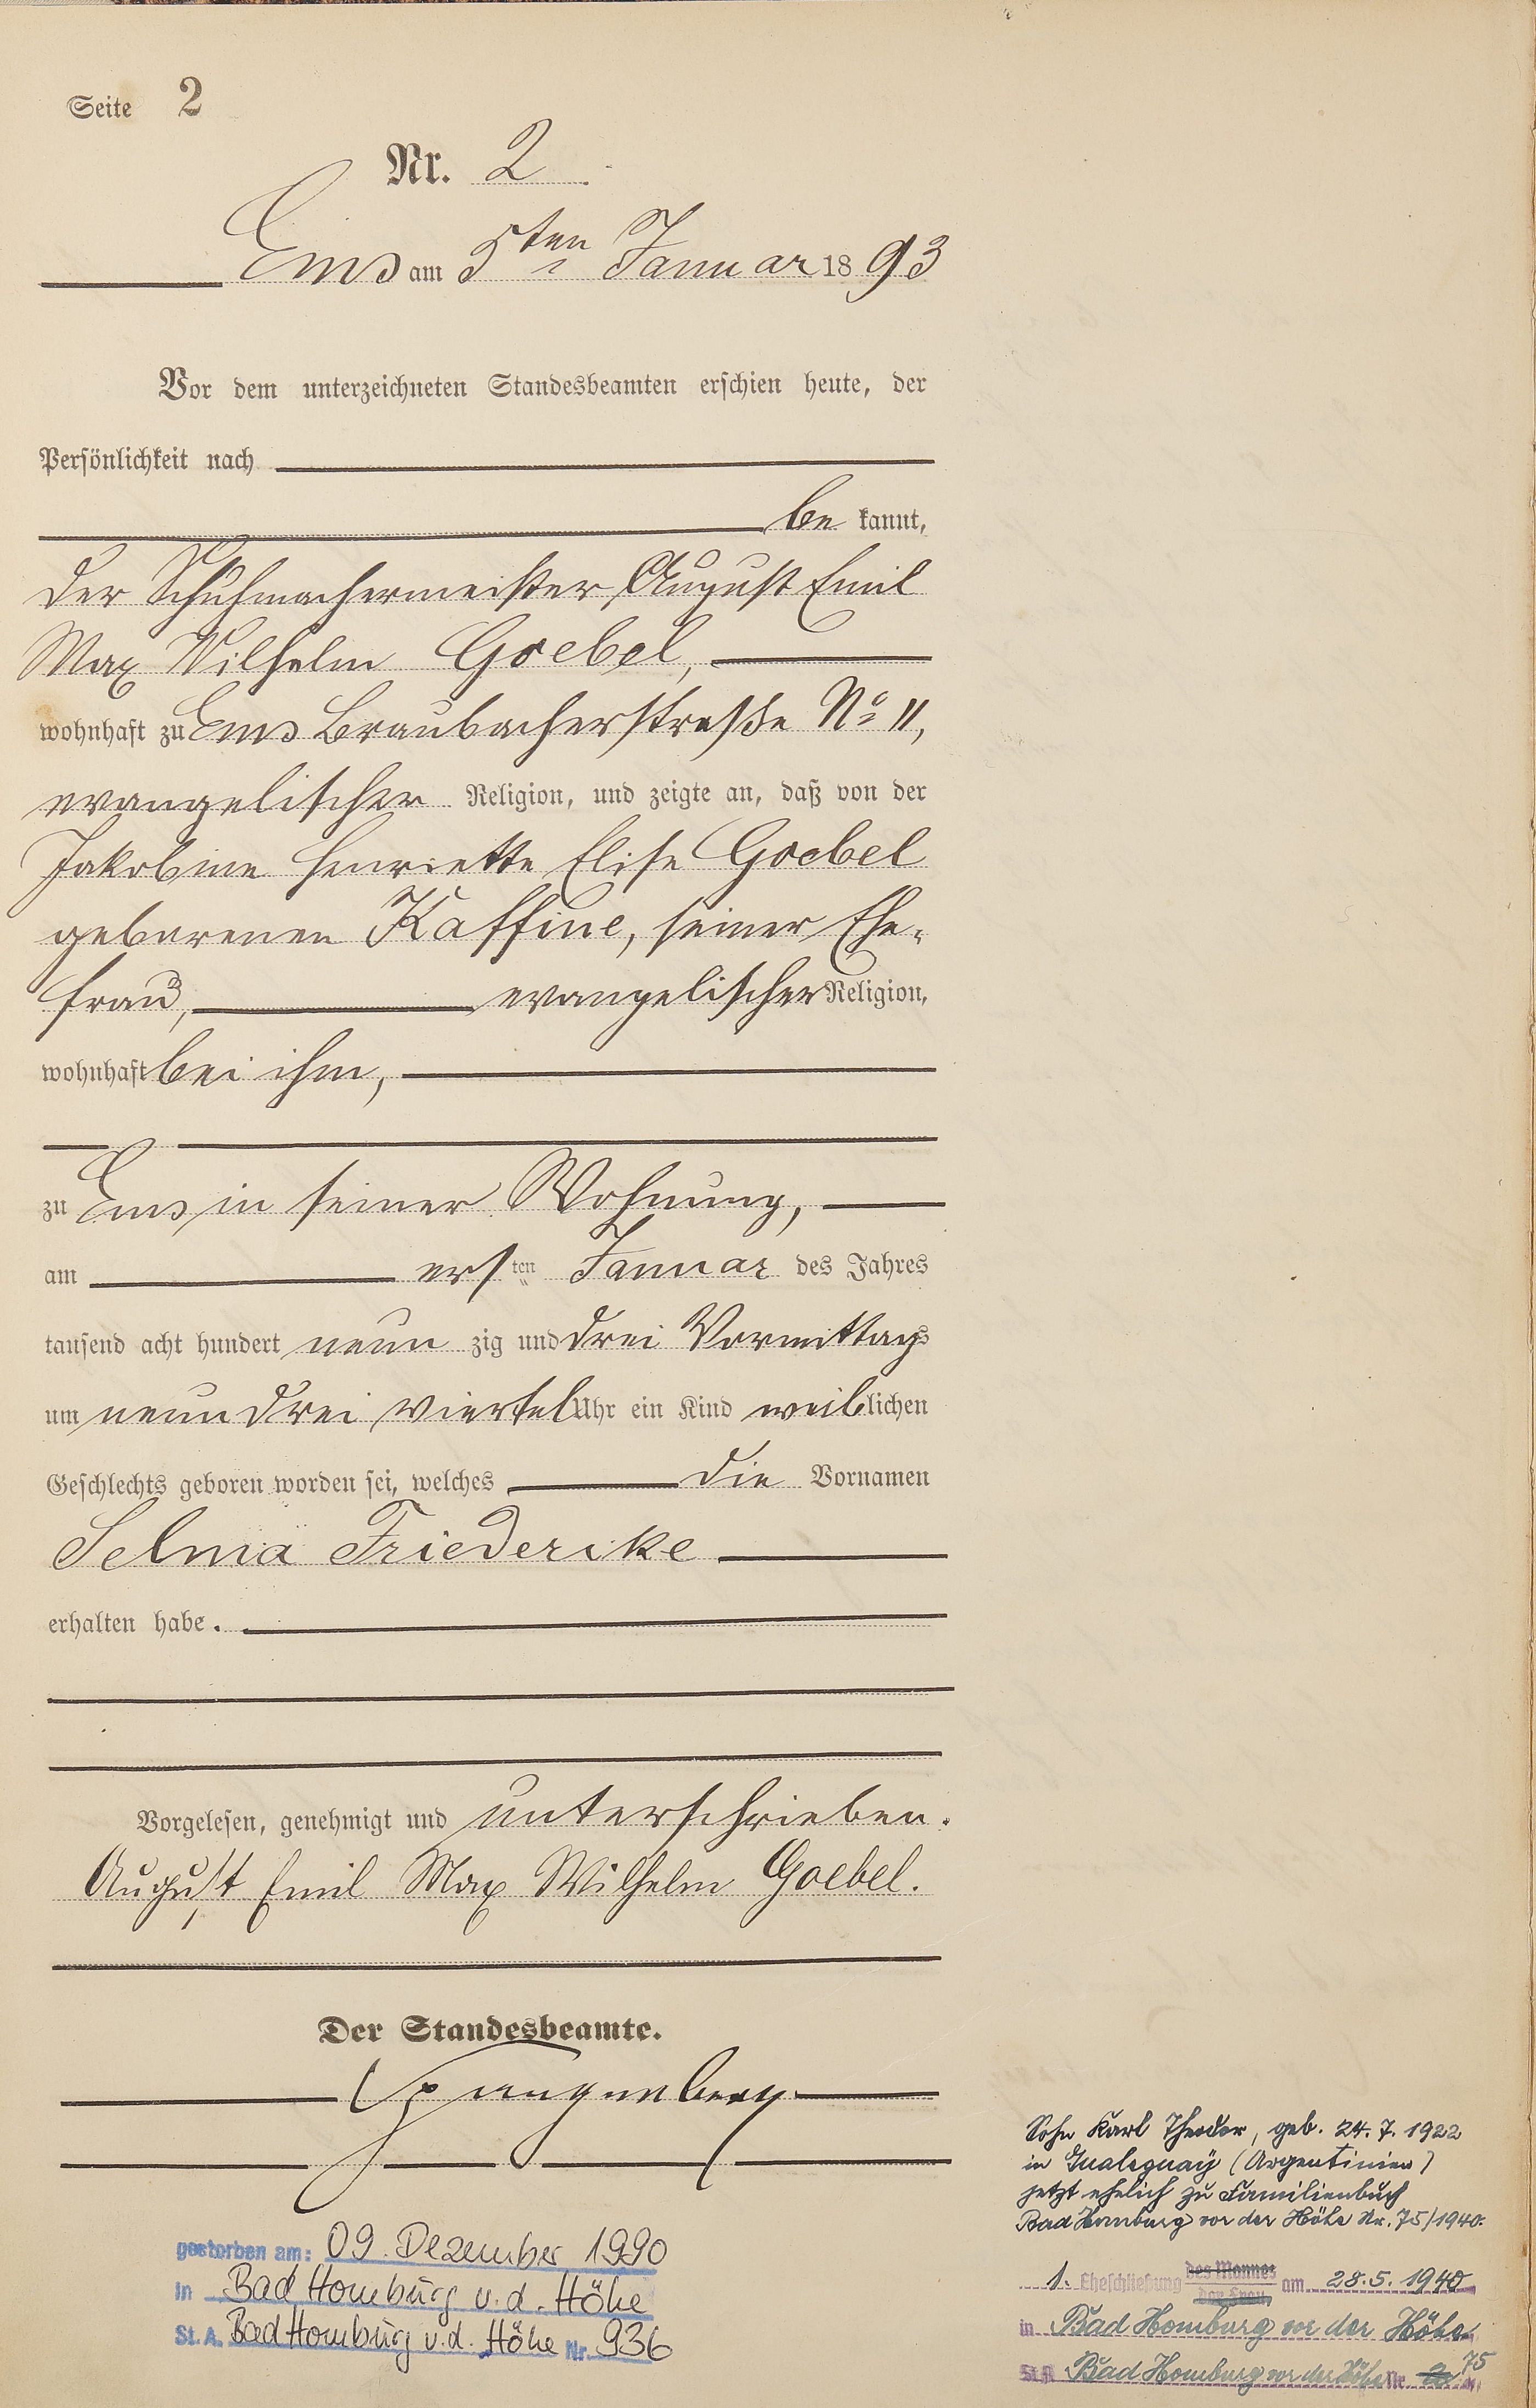 Seite 2
Nr. 2
Ems am 5ten Januar 1893
Vor dem unterzeichneten Standesbeamten erschien heute, der
Persönlichkeit nach
be kannt,
der Schuhmachermeister August Emil
Max Wilhelm Goebel,
wohnhaft zu Ems Braubacherstraße No 11,
evangelischer Religion, und zeigte an, daß von der
Jakobine Henriette Elise Goebel
geborenen Kaffine, seiner Ehe-
frau, evangelischer Religion,
wohnhaft bei ihm,
zu Ems in seiner Wohnung,
am ersten Januar des Jahres
tausend acht hundert neun zig und drei Vormittags
um neun drei viertel Uhr ein Kind weiblichen
Geschlechts geboren worden sei, welches die Vornamen
Selma Friedericke
erhalten habe.
Vorgelesen, genehmigt und unterschrieben.
August Emil Max Wilhelm Goebel.
Der Standesbeamte.
Spangenberg
gestorben am: 09. Dezember 1990
in Bad Homburg v. d. Höhe
St. A. Bad Homburg v. d. Höhe Nr. 936
Sohn Karl Theodor, geb. 24. 7. 1922
in Gualeguay (Argentinien)
jetzt ehelich zu Familienbuch
Bad Homburg vor der Höhe Nr. 75/1940.
1. Eheschließung des Mannes der Frau am 28. 5. 1940
in Bad Homburg vor der Höhe
St.A. Bad Homburg vor der Höhe Nr. 75